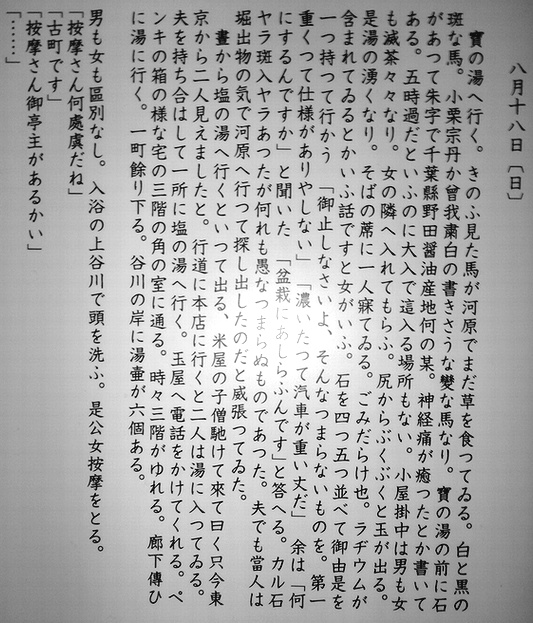 八月十八日〔日〕
寶の湯へ行く。きのふ見た馬が河原でまだ草を食つてゐる。白と黒の
斑な馬。小栗宗丹か曾我粛白の書きさうな變な馬なり。寶の湯の前に石
があつて朱字で千葉縣野田醤油産地何の某。神経痛が癒つたとか書いて
ある。五時過だといふのに大入で這入る場所もない。小屋掛中は男も女
も滅茶々々なり。女の隣へ入れてもらふ。尻からぶくぶくと玉が出る。
是湯の湧くなり。そばの蓆に一人寐てゐる。ごみだらけ也。ラヂウムが
含まれてゐるとかいふ話ですと女がいふ。石を四つ五つ並べて御由是を
一つ持つて行かう「御止しなさいよ、そんなつまらないものを。第一
重くつて仕様がありやしない」「濃いたつて汽車が重い丈だ」余は「何
にするんですか」と聞いた「盆栽にあしらふんです」と答へる。カル石
ヤラ斑入ヤラあつたが何れも愚なつまらぬものであつた。夫でも當人は
堀出物の気で河原へ行つて探し出したのだと威張つてゐた。
晝から塩の湯へ行くといつて出る、米屋の子僧馳けて來て曰く只今東
京から二人見えましたと。行道に本店に行くと二人は湯に入つてゐる。
夫を持ち合はして一所に塩の湯へ行く。玉屋へ電話をかけてくれる。ペ
ンキの箱の様な宅の三階の角の室に通る。時々三階がゆれる。廊下傳ひ
に湯に行く。一町餘り下る。谷川の岸に湯壷が六個ある。
男も女も區別なし。入浴の上谷川で頭を洗ふ。是公女按摩をとる。
「按摩さん何處虞だね」
「古町です」
「按摩さん御亭主があるかい」
「……」